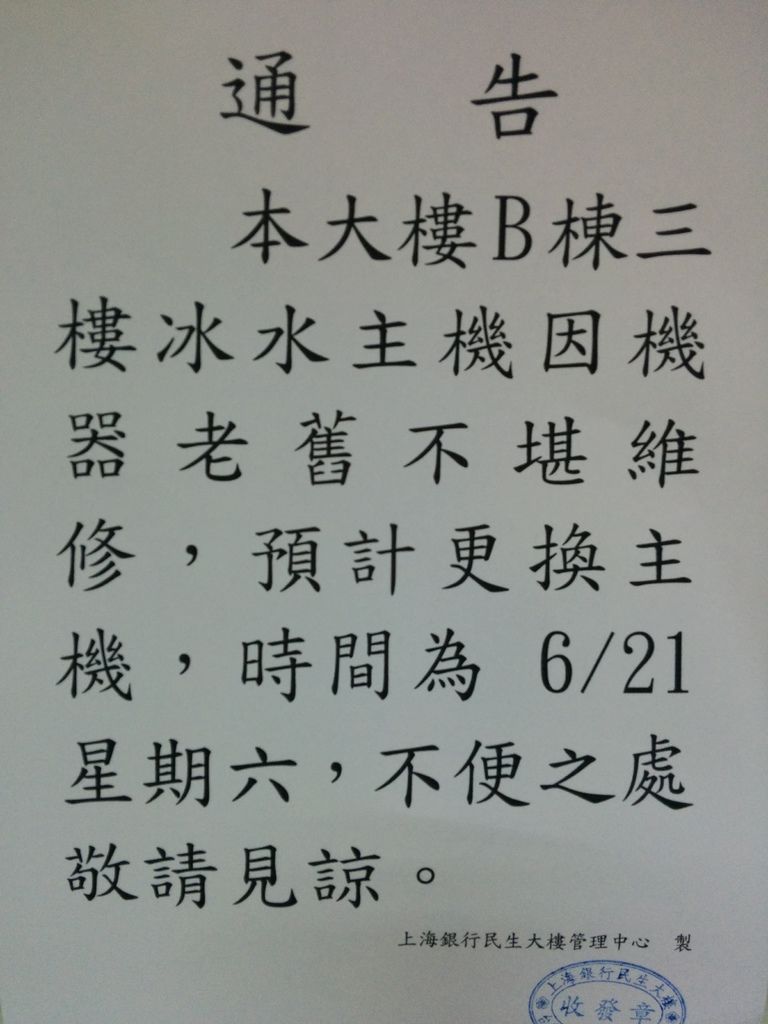 通 告
本大樓B棟三
樓冰水主機因機
器老舊不堪維
修，預計更換主
機，時間為 6/21
星期六，不便之處
敬請見諒。
上海銀行民生大樓管理中心 製
上海銀行民生大樓
收發章